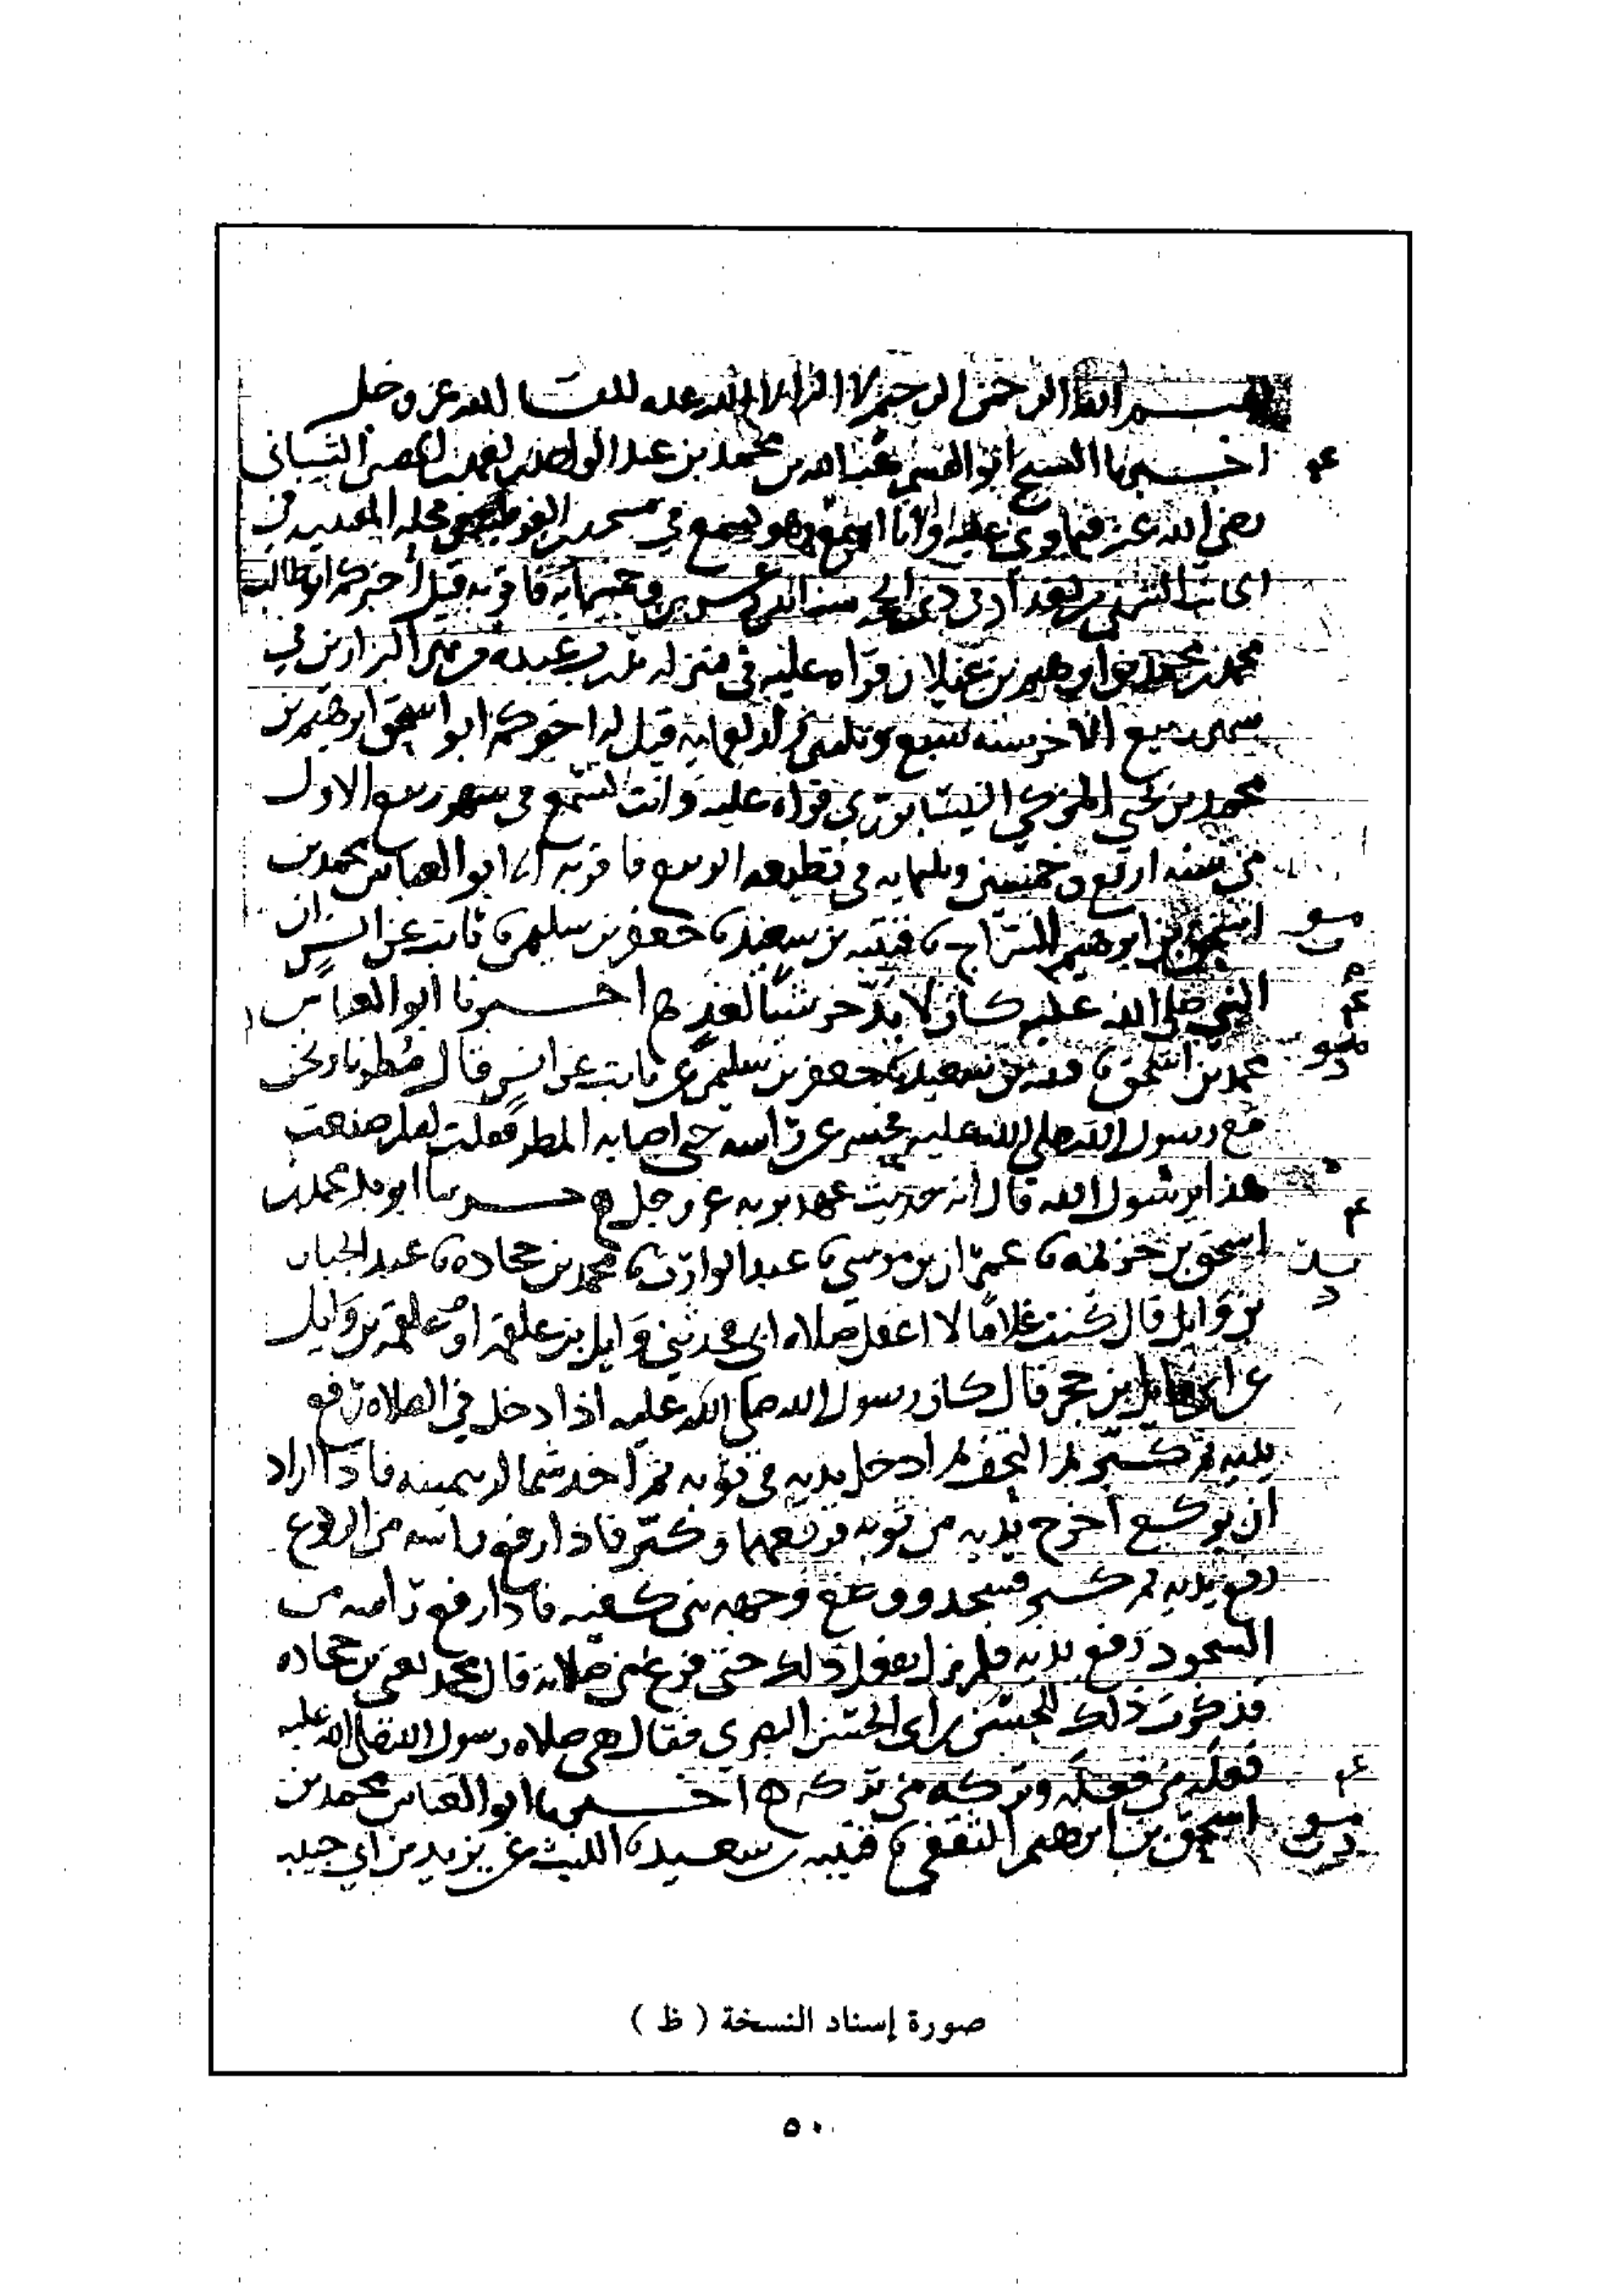 بسم الله الرحمن الرحيم لا اله الا الله عده للقا الله عز وجل
اخبرنا الشيخ ابو القسم هبة الله بن محمد بن عبد الواحد بن الحصين الشيباني
رضي الله عنه فيما قرى عليه وانا اسمع وهو يسمع في مسجد محله في
الجانب الشرقي ببغداد في ذي الحجه سنه وعشرين وخمسمايه فاقر به قيل اخبركم ابو طالب
محمد بن محمد بن ابرهيم بن غيلان قراه عليه في منزله بدرب عبده البزازين في
شهر ربيع الاخر سنه سبع وثلثين واربعمايه قيل له اخبركم ابو اسحق ابرهيم بن
محمد بن يحيى المزكي النيسابوري قراه عليه وانت تسمع في شهر ربيع الاول
من سنه اربع وخمسين وثلثمايه في قطيعه الربيع فاقر به ابو العباس محمد بن
اسحق بن ابرهيم السراج نا قتيبه بن سعيد نا جعفر بن سليمن نا ثابت عن انس ان
النبي صلى الله عليه كان لا يدخر شيا لغد ه اخبرنا ابو العباس
محمد بن اسحق نا قتيبه بن سعيد نا جعفر بن سليمن عن ثابت عن انس قال مطرنا ونحن
مع رسول الله صلى الله عليه فحسر عن راسه حتى اصابه المطر فقلت لم صنعت
هذا يرسول الله قال انه حديث عهد بربه عز وجل ه اخبرنا ابو بكر محمد بن
اسحق بن خزيمه نا عمران بن موسى نا عبد الوارث نا محمد بن جحاده نا عبد الجبار
بن وايل قال كنت غلاما لا اعقل صلاه ابي فحدثني وايل بن علقمه او علقمه بن وايل
عن ابي وايل بن حجر قال كان رسول الله صلى الله عليه اذا دخل في الصلاه رفع
يديه ثم كبر ثم التحف ثم ادخل يديه في ثوبه ثم اخذ شماله بيمينه فاذا اراد
ان يركع اخرج يديه من ثوبه ورفعهما وكبر فاذا رفع راسه من الركوع
رفع يديه ثم كبر فسجد ووضع وجهه بين كفيه فاذا رفع راسه من
السجود رفع يديه فلم يزل يفعل ذلك حتى فرغ من صلاته قال محمد يعني بن جحاده
فذكرت ذلك للحسن بن ابي الحسن البصري فقال هي صلاه رسول الله صلى الله عليه
فعله من فعله وتركه من تركه ه اخبرنا ابو العباس محمد بن
اسحق بن ابرهيم الثقفي نا قتيبه بن سعيد نا الليث عن يزيد بن ابي حبيب
صورة إسناد النسخة ( ظ )
٥٠